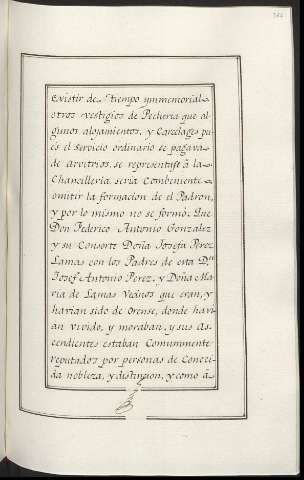 existir de tiempo ynmemorial
otros vestigios de Pecheria que al
gunos alojamientos, y Carcelages pu
es el servicio ordinario se pagava
de arvitrios, se representase á la
Chancilleria seria Combeniente
omitir la formacion de el Padron,
y por lo mismo no se formó. Que
Don Federico Antonio Gonzalez
y su Consorte Doña Josefa Perez
Lamas con los Padres de esta Dª
Josef Antonio Perez, y Doña Ma
ria de Lamas Vecinos que eran, y
havian sido de Orense, donde havi
an vivido, y moraban, y sus As
cendientes estaban Comunmente
reputados por personas de Conoci
da nobleza, y distincion, y como á